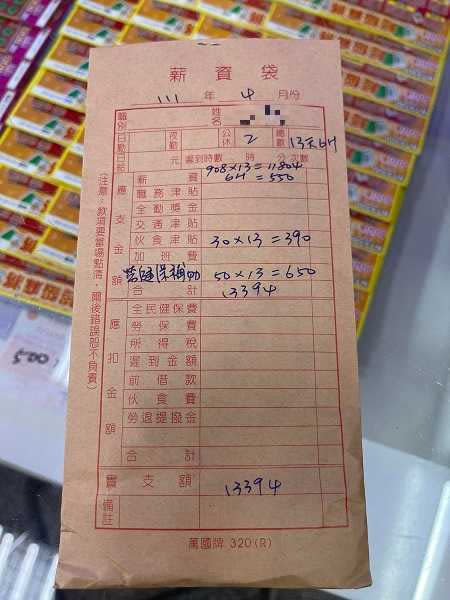 薪資袋
111 年 4 月份
職別 姓名
日勤 夜勤 公休 2 總數 13天6H
日給 元 遲到時數 時 分 次數
應支金額
薪資 908×13=11804
6H=550
職務津貼
全勤獎金
交通津貼
伙食津貼 30×13=390
加班費
勞健保補助 50×13=650
合計 13394
應扣金額
全民健保費
勞保費
所得稅
遲到金額
前借款
伙食費
勞退提撥金
合計
實支額 13394
備註
(注意：款項要當場點清，爾後錯誤恕不負責)
萬國牌 320(R)